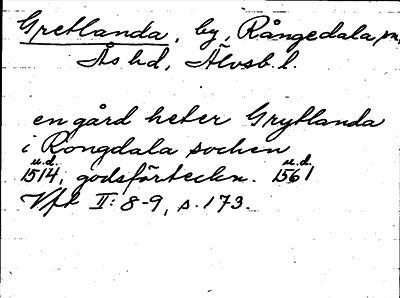 Gretlanda, by, Rångedala sn,
Ås hd, Älvsb. l.
en gård heter Grytlanda
i Rongdala sochen
u.d. u.d.
1514, godsförteckn. 1561
Vfl II: 8-9, s. 173.